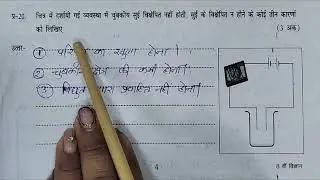 प्र-20. चित्र में दर्शायी गई व्यवस्था में चुंबकीय सुई विक्षेपित नहीं होती, सुई के विक्षेपित न होने के कोई तीन कारणों
को लिखिए (3 अंक)
उत्तर-
① का खुला होना।
② चुंबकीय की कमी होना।
③ विद्युत धारा प्रवाहित नहीं होना।
4
8 वीं विज्ञान